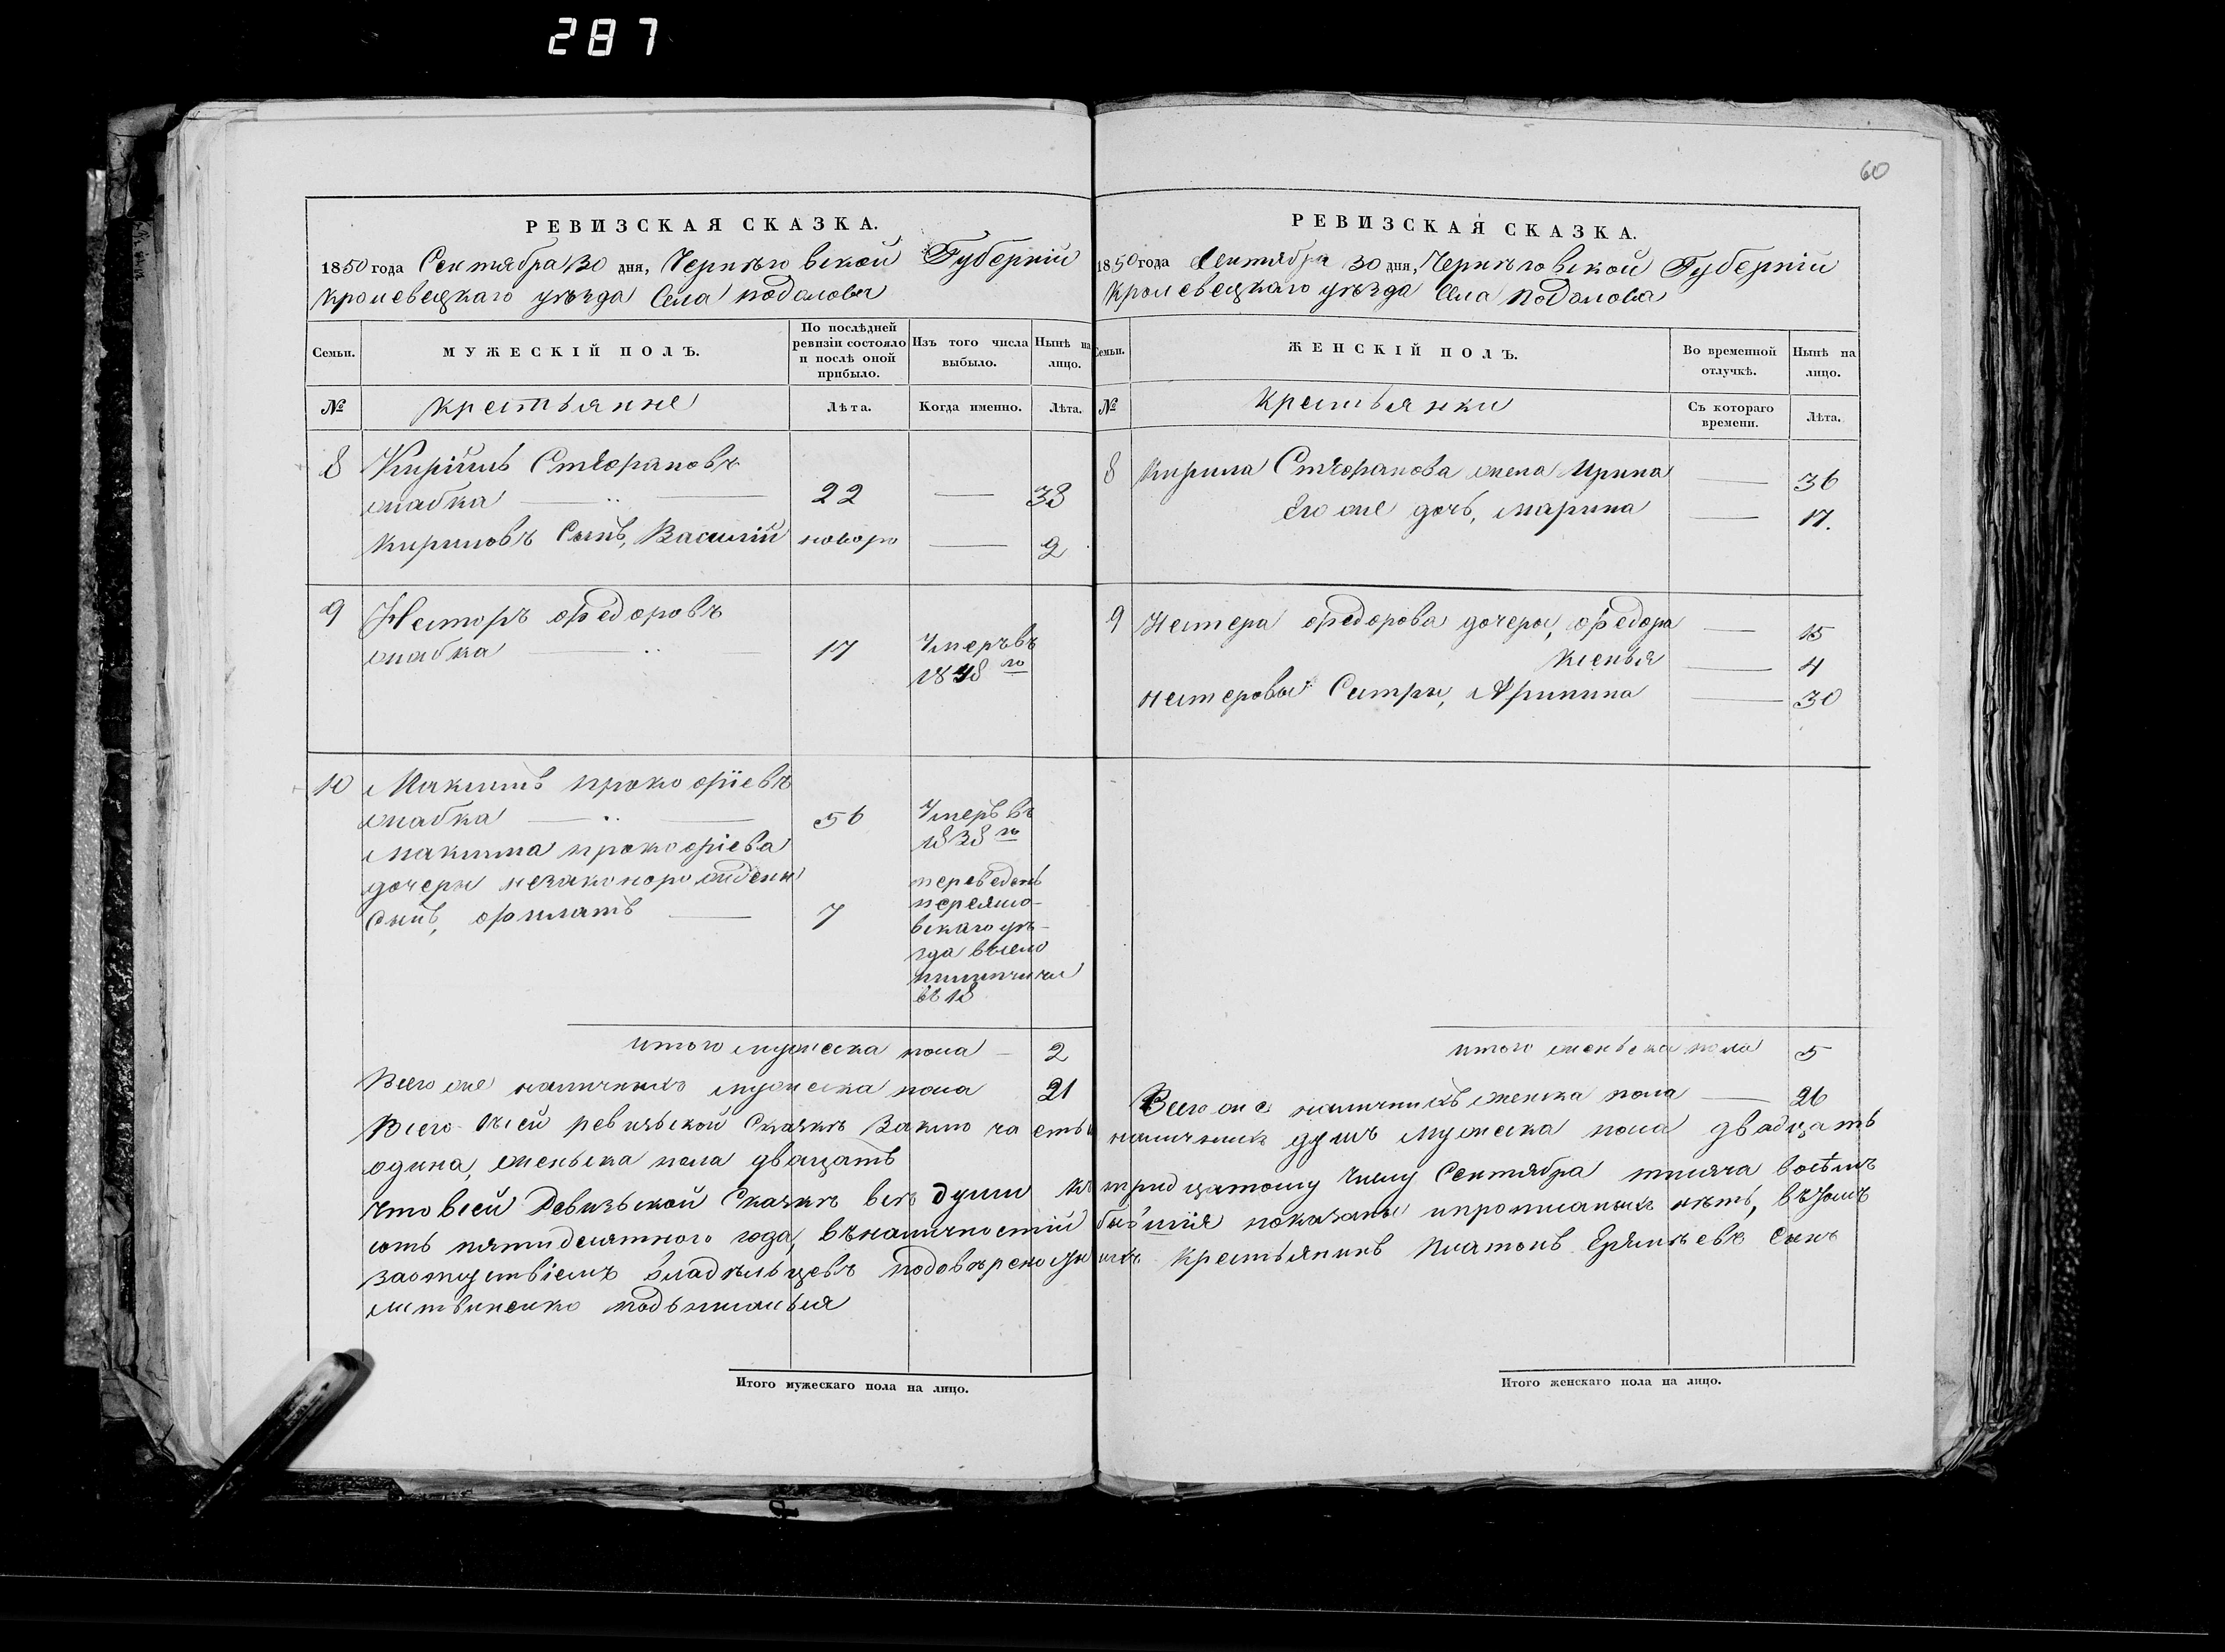 287
60
РЕВИЗСКАЯ СКАЗКА.
1850 года Сентября 30 дня, Чернѣговской Губерніи
Кролевецкаго уѣзда Села подолова
Семьи.
МУЖЕСКІЙ ПОЛЪ.
По послѣдней ревизіи состояло и послѣ оной прибыло.
Изъ того числа выбыло.
Нынѣ на лицо.
№
крестьянне
Лѣта.
Когда именно.
Лѣта.
8 Кирілъ Стефановъ
жабка 22 — 38
Кириловъ Сынъ, Василій новоро — 9
9 Несторъ федоровъ
жабка 17 Умеръ въ
1848 го
10 Максимъ прокофіевъ
жабка 56 Умеръ въ
1838 го
Максима прокофіева
дочеры незаконорожденн
Сынъ, филатъ 7
переведенъ
переясло-
вскаго уѣ-
зда въсело
въ 18
итого мужеска пола — 2
Всего же наличныхъ мужеска пола 21
РЕВИЗСКАЯ СКАЗКА.
1850 года Сентября 30 дня, Чернѣговской Губерніи
Кролевецкаго уѣзда Села Подолова
Семьи.
ЖЕНСКІЙ ПОЛЪ.
Во временной отлучкѣ.
Нынѣ на лицо.
№
Крестьянки
Съ котораго времени.
Лѣта.
8 Кирила Стефанова жена Ирина — 36
Его же дочь, марина — 17.
9 Нестера федорова дочеры, федора — 15
Ксенья — 4
нестеровы Сестры, Яринина — 30
итого женьска пола 5
Всего же наличныхъ женска пола — 26
Всего въсей ревизьской Сказкѣ Заключаеться наличныхъ душъ Мужеска пола двадцать
одина, женьска пола двацать
Что всей Ревизьской Сказкѣ всѣ души къ тридцатому числу Сентября тысяча восѣмъ
сотъ пятидесятного года, въналичностій бывшія показаны ипрописаныхъ нѣтъ, вътомъ
заотсуствіемъ владѣльцевъ крестьянинъ Платонъ Сынъ
литвиненко подъписалься
Итого мужескаго пола на лицо.
Итого женскаго пола на лицо.